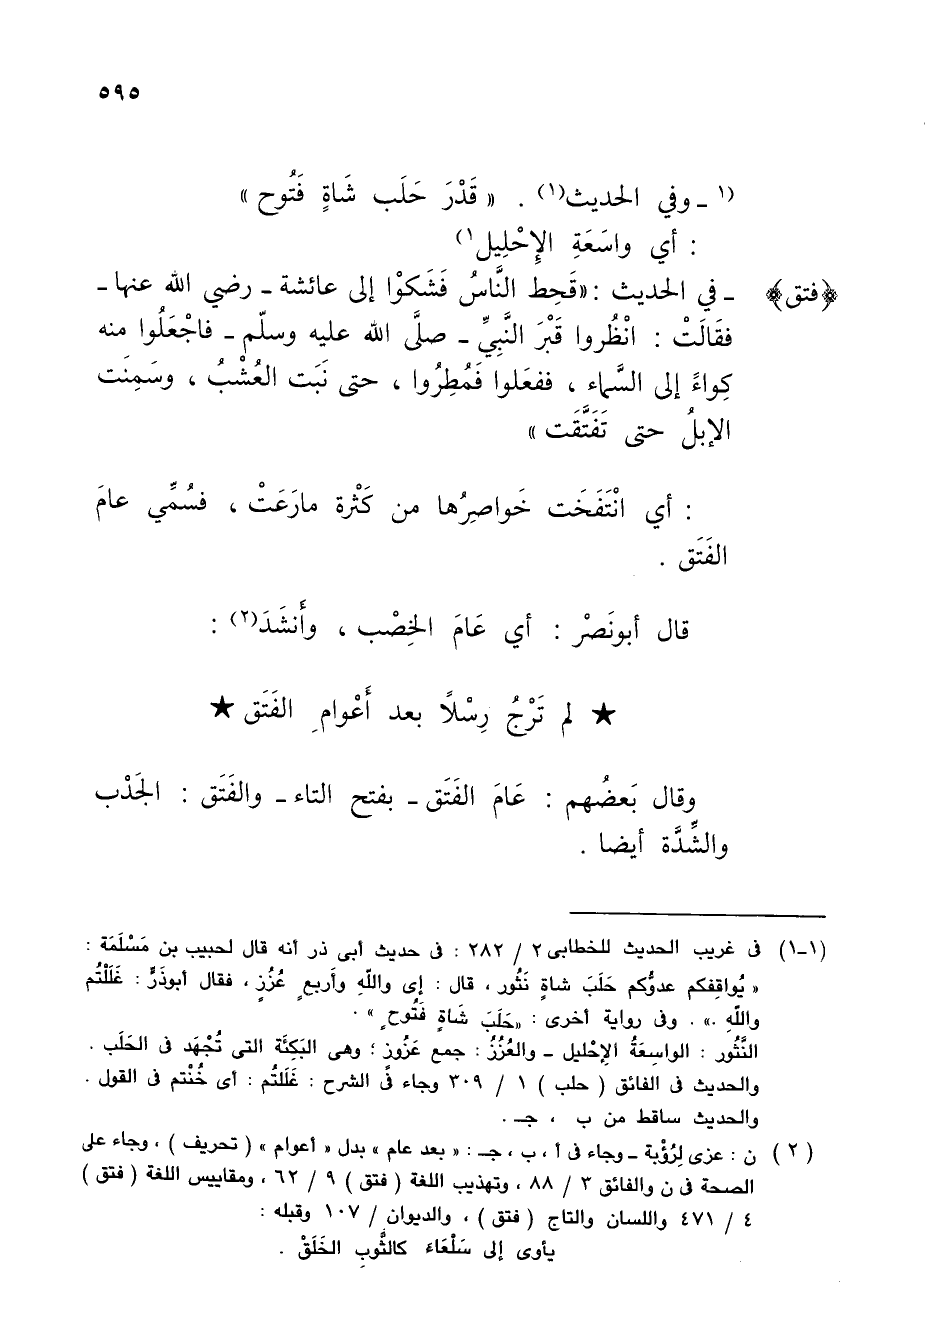 ٥٩٥
(١ ـ وفي الحديث(١) . « قَدْرَ حَلَب شَاةٍ فَتُوح »
: أي واسَعَةِ الإِحْلِيل١)
﴿فتق﴾ ـ في الحديث : «قَحِط النَّاسُ فَشَكَوْا إلى عائشة ـ رضي الله عنها ـ
فقَالَتْ : انْظُروا قَبْرَ النَّبِيِّ ـ صلَّى الله عليه وسلّم ـ فاجْعَلُوا منه
كِواءً إلى السَّماء ، ففعَلوا فَمُطِرُوا ، حتى نَبَت العُشْبُ ، وسَمِنَت
الإبلُ حتى تَفَتَّقَت »
: أي انْتَفَخَت خَواصِرُها من كَثْرة مارَعَتْ ، فسُمِّي عامَ
الفَتَق .
قال أبونَصْر : أي عَامَ الخِصْب ، وأَنشَدَ(٢) :
★ لم تَرْجُ رِسْلاً بعد أَعْوامِ الفَتَق ★
وقال بَعضُهم : عَامَ الفَتَق ـ بفتح التاء ـ والفَتَق : الجَدْب
والشِّدَّة أيضا .
(١ـ١) فى غريب الحديث للخطابى ٢ / ٢٨٢ : فى حديث أبى ذر أنه قال لحبيب بن مَسْلَمَة :
« يُواقِفكم عدوُّكم حَلَبَ شاةٍ نَثُور ، قال : إى واللّهِ وأربعٍ عُزُزٍ ، فقال أبوذَرٍّ : غَلَلْتُم
واللّهِ .» . وفى رواية أخرى : «حَلَبَ شَاةٍ فَتُوحٍ » .
النَّثُور : الواسِعَةُ الإحْليل ـ والعُزُزُ : جمع عَزُوز ؛ وهى البَكِئَة التى تُجْهَد فى الحَلَب .
والحديث فى الفائق ( حلب ) ١ / ٣٠٩ وجاء فى الشرح : غَلَلتُم : أى خُنْتم فى القول .
والحديث ساقط من ب ، جـ .
( ٢ ) ن : عزى لِرُؤْبة ـ وجاء فى أ ، ب ، جـ : « بعد عام » بدل « أعوام » ( تحريف ) ، وجاء على
الصحة فى ن والفائق ٣ / ٨٨ ، وتهذيب اللغة ( فتق ) ٩ / ٦٢ ، ومقاييس اللغة ( فتق )
٤ / ٤٧١ واللسان والتاج ( فتق ) ، والديوان / ١٠٧ وقبله :
يأوى إلى سَلْعَاءَ كالثَّوبِ الخَلَقْ .